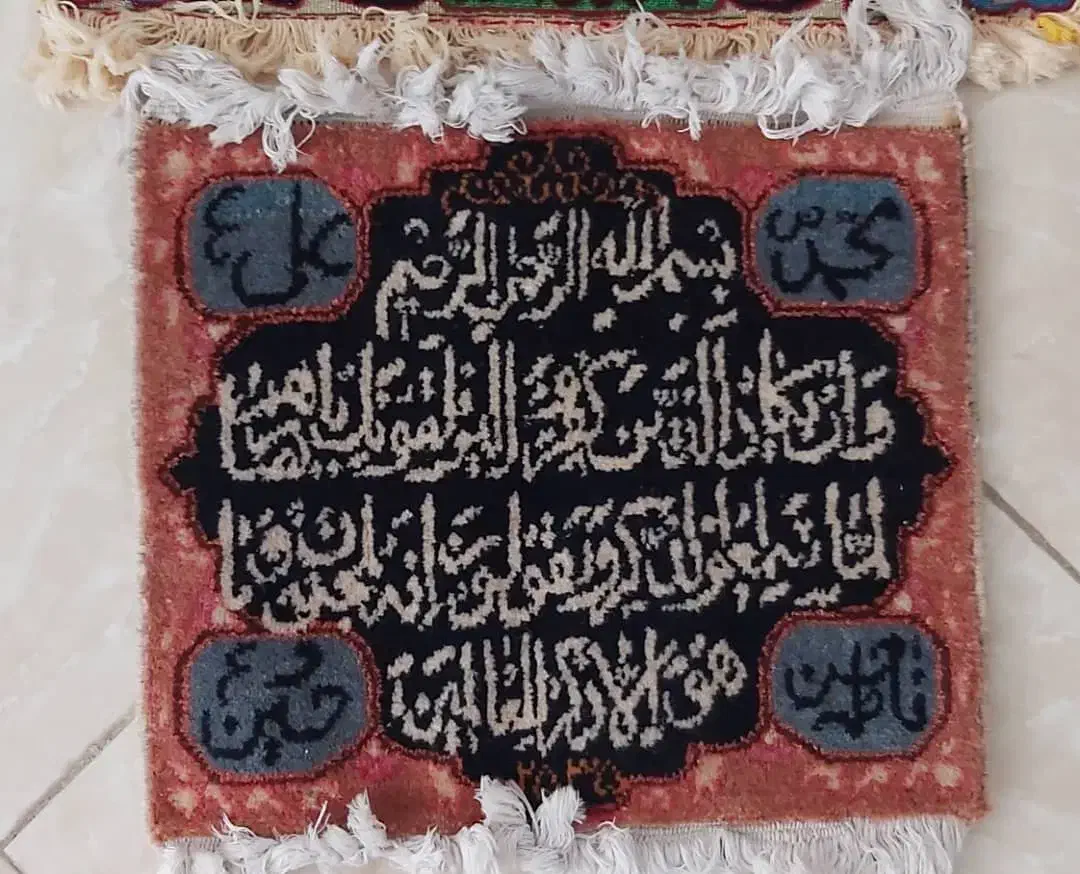 محمد ص
علی ع
بسم الله الرحمن الرحیم
وان یکاد الذین کفروا لیزلقونک بابصارهم
لما سمعوا الذکر ویقولون انه لمجنون وما
هو الا ذکر للعالمین
حسین